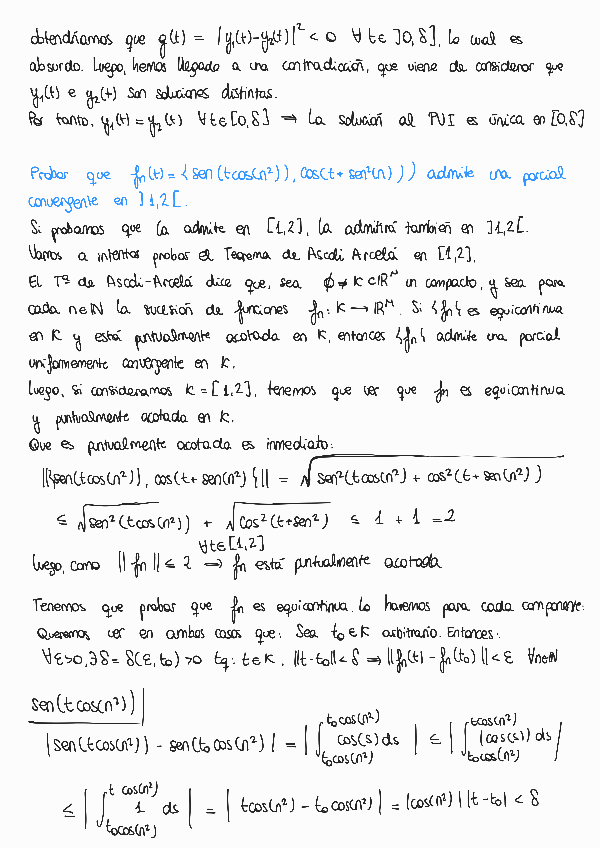 obtendríamos que g(t) = |y₁(t)-y₂(t)|² < 0 ∀ t∈ ]0,δ], lo cual es
absurdo. Luego, hemos llegado a una contradicción, que viene de considerar que
y₁(t) e y₂(t) son soluciones distintas.
Por tanto, y₁(t) = y₂(t) ∀t∈[0,δ] ⟹ La solución al PVI es única en [0,δ]
Probar que fn(t) = {sen(tcos(n²)), cos(t+sen²(n))) admite una parcial
convergente en ]1,2[.
Si probamos que la admite en [1,2], la admitirá también en ]1,2[.
Vamos a intentar probar el Teorema de Ascoli Arcelá en [1,2].
El Tª de Ascoli-Arcelá dice que, sea ∅ ≠ K ⊂ ℝᴺ un compacto, y sea para
cada n∈ℕ la sucesión de funciones fn: K → ℝᴹ. Si {fn} es equicontinua
en K y está puntualmente acotada en K, entonces {fn} admite una parcial
uniformemente convergente en K.
Luego, si consideramos K = [1,2], tenemos que ver que fn es equicontinua
y puntualmente acotada en K.
Que es puntualmente acotada es inmediato:
||{sen(tcos(n²)), cos(t+sen(n²)}|| = √sen²(tcos(n²) + cos²(t+sen(n²))
≤ √sen²(tcos(n²)) + √cos²(t+sen²) ≤ 1 + 1 = 2
∀t∈[1,2]
Luego, como ||fn|| ≤ 2 ⟹ fn está puntualmente acotada
Tenemos que probar que fn es equicontinua. Lo haremos para cada componente:
Queremos ver en ambos casos que: Sea t₀∈K arbitrario. Entonces:
∀ε>0, ∃δ = δ(ε,t₀) >0 tq: t∈K, ||t-t₀|| < δ ⟹ ||fn(t) - fn(t₀)|| < ε ∀n∈ℕ
sen(tcos(n²))|
|sen(tcos(n²)) - sen(t₀cos(n²)| = |∫_{t₀cos(n²)}^{t₀cos(n²)} cos(s)ds| ≤ |∫_{t₀cos(n²)}^{tcos(n²)} |cos(s)|ds|
≤ |∫_{t₀cos(n²)}^{t cos(n²)} 1 ds| = |tcos(n²) - t₀cos(n²)| = |cos(n²)||t-t₀| < δ